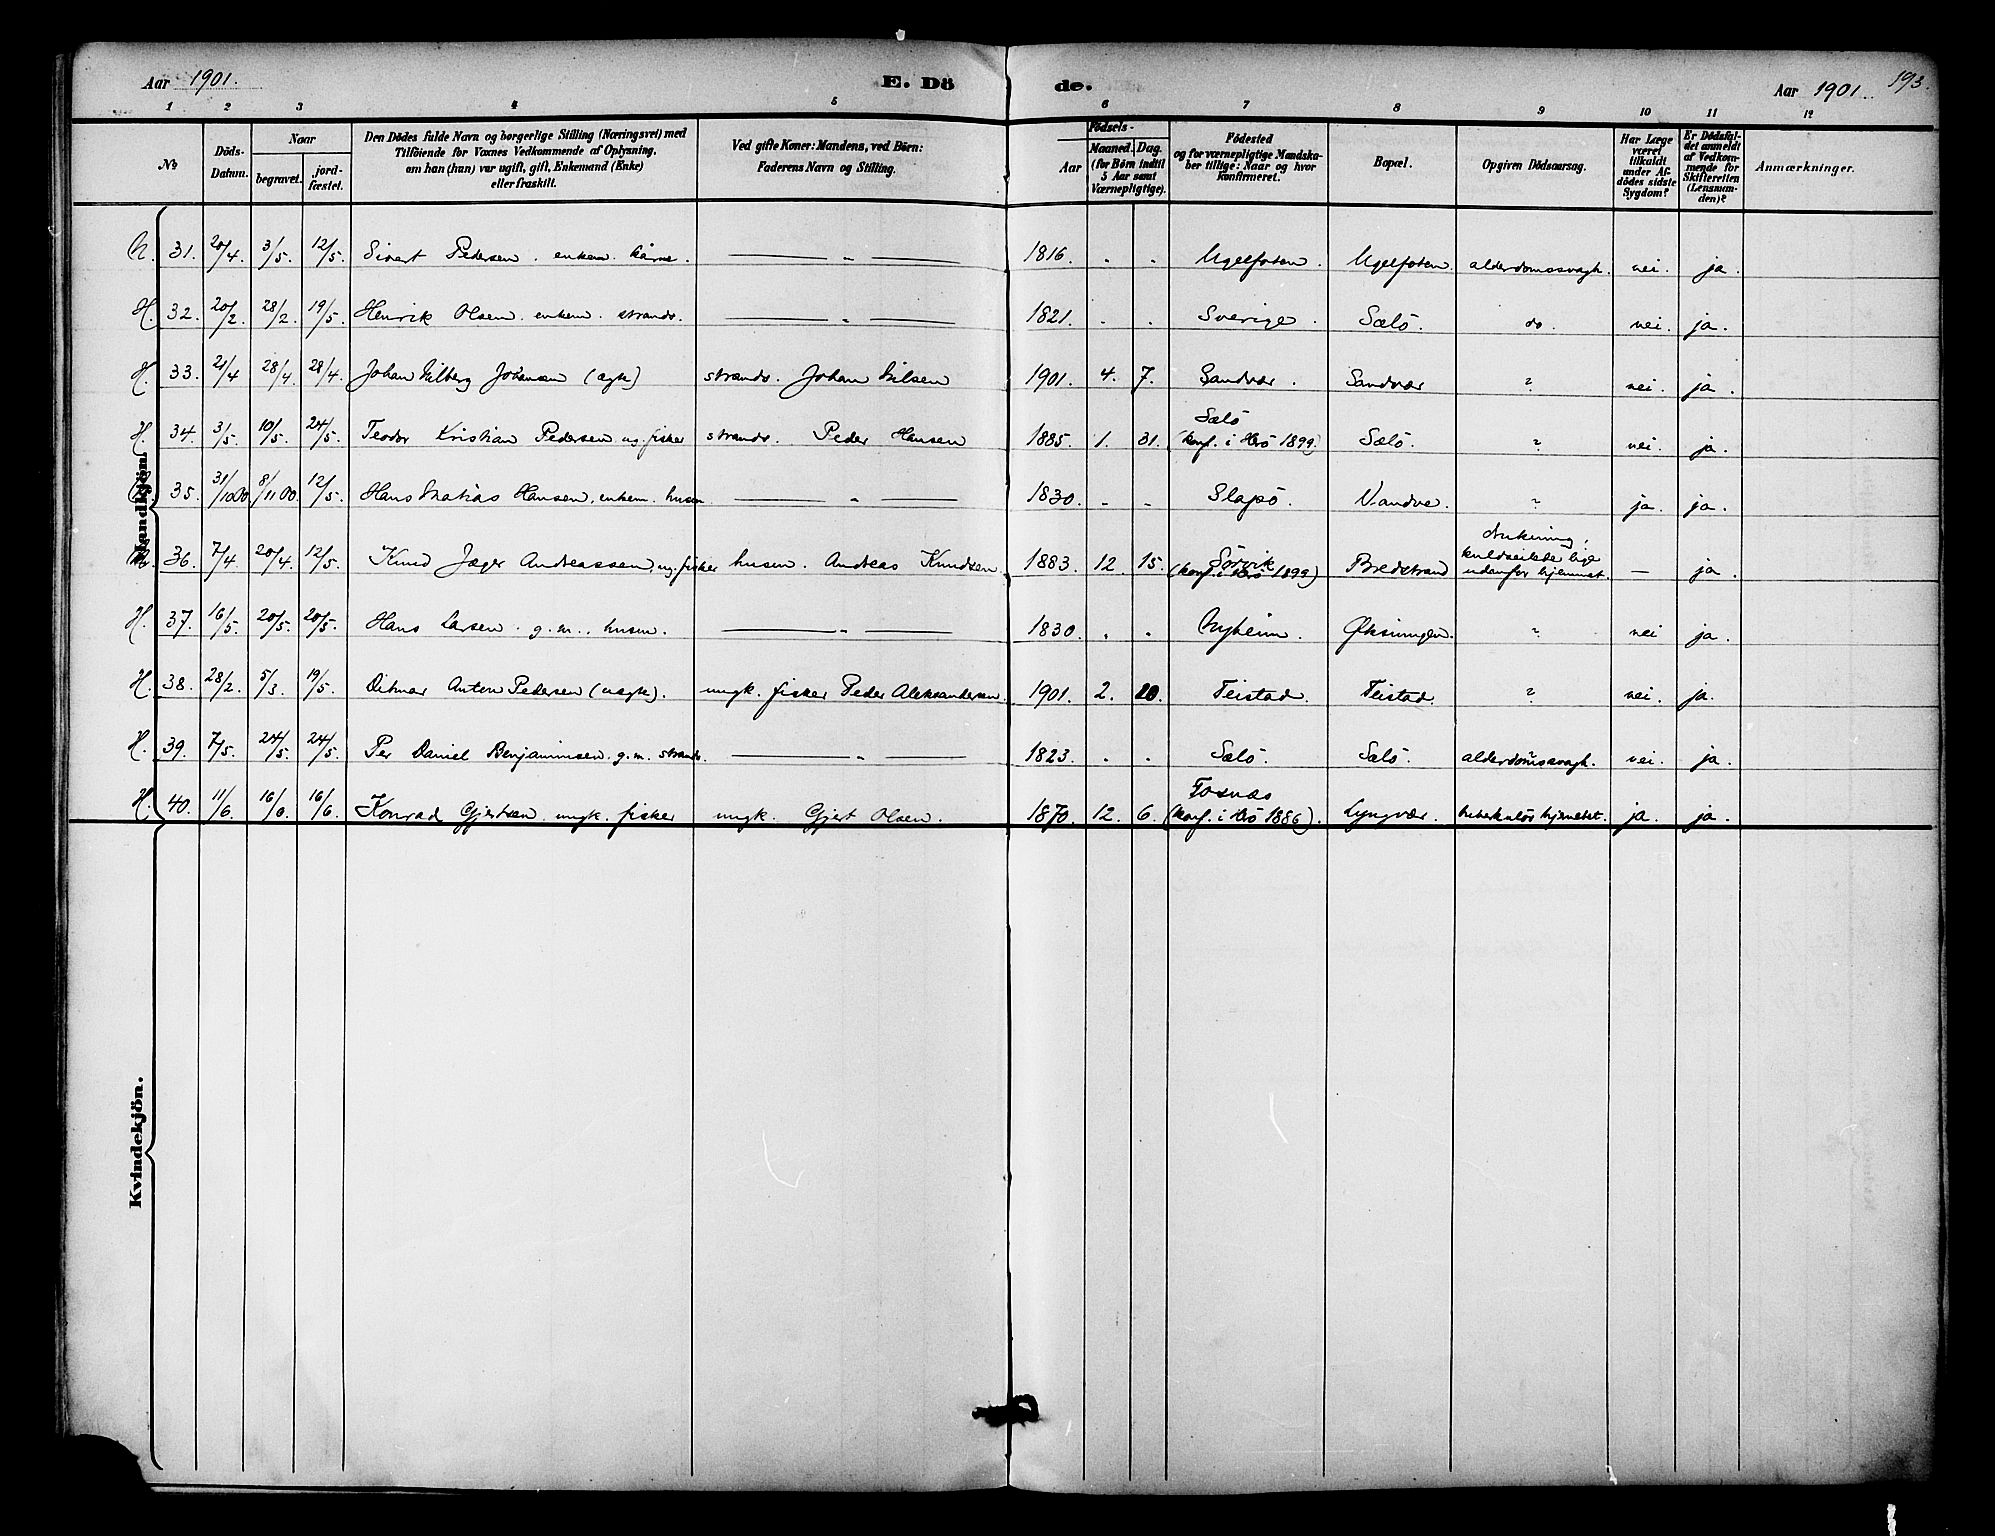 Aar 1901. E. Dö de. Aar 1901. 193.
1 2 3 4 5 6 7 8 9 10 11 12
No
Döds-Datum.
Naar
begravet.
jord-fæstet.
Den Dödes fulde Navn og borgerlige Stilling (Næringsvei) med
Tilföiende for Voxnes Vedkommende af Oplysning,
om han (hun) var ugift, gift, Enkemand (Enke)
eller fraskilt.
Ved gifte Koner: Mandens, ved Börn:
Faderens Navn og Stilling.
Födsels-
Aar
Maaned. Dag.
(for Börn indtil
5 Aar samt
Værnepligtige).
Födested
og for værnepligtige Mandska-
ber tillige: Naar og hvor
konfirmeret.
Bopæl.
Opgiven Dödsaarsag.
Har Læge
været
tilkaldt
under Af-
dödes sidste
Sygdom?
Er Dödsfal-
det anmeldt
af Vedkom-
mende for
Skifteretten
(Lensman-
den)?
Anmærkninger.
Mandkjön.
31. 20/4. 3/5. 12/5. Sivert Pedersen. enkem. kårm. — " — 1816. . . Ugelfoten. Ugelfoten. alderdomssvagh. nei. ja.
H. 32. 20/2. 28/2. 19/5. Henrik Olsen. enkem. strands. — " — 1821. . . Sverige. Sælö. do nei. ja.
H. 33. 21/4 28/4. 28/4. Johan Johansen (ægte) strands. Johan Nilsen 1901. 4. 7. Sandvær. Sandvær ? nei. ja.
H. 34. 3/5. 10/5. 24/5. Teodor Kristian Pedersen ug. fisker strands. Peder Hansen 1885. 1. 31. Sælö (konf. i Herö 1899) Sælö. ? nei. ja.
35. 31/10 00. 8/11 00. 12/5. Hans Matias Hansen. enkem. husm — " — 1830. - - Slapö. Vandve. ? ja. ja.
36. 7/4 20/4. 12/5. Knud Jæger Andreassen, ug. fisker husm. Andreas Knudsen. 1883. 12. 15. Sörvik (konf. i Herö 1899) Bredstrand Drukning; kuldseilede lige udenfor hjemmet. — ja.
H. 37. 16/5. 20/5. 20/5. Hans Larsen. g.m., husm. — " — 1830. . . Nyheim. Øksningen. ? nei ja.
H. 38. 28/2. 5/3. 19/5. Ditmar Anton Pedersen (uægte). ungk. fisker Peder Aleksandersen. 1901. 2. 20. Teistad. Teistad. ? nei. ja.
H. 39. 7/5. 24/5. 24/5. Per Daniel Benjaminsen. g.m. strands. — " — 1823. . . Sælö. Sælö. alderdomssvagh. nei. ja.
H. 40. 11/6. 16/6. 16/6. Konrad Gjertsen ungk. fisker ungk. Gjert Olsen. 1870. 12. 6. Fosnæs (konf. i Herö 1886). Lyngvær. ja. ja.
Kvindekjön.